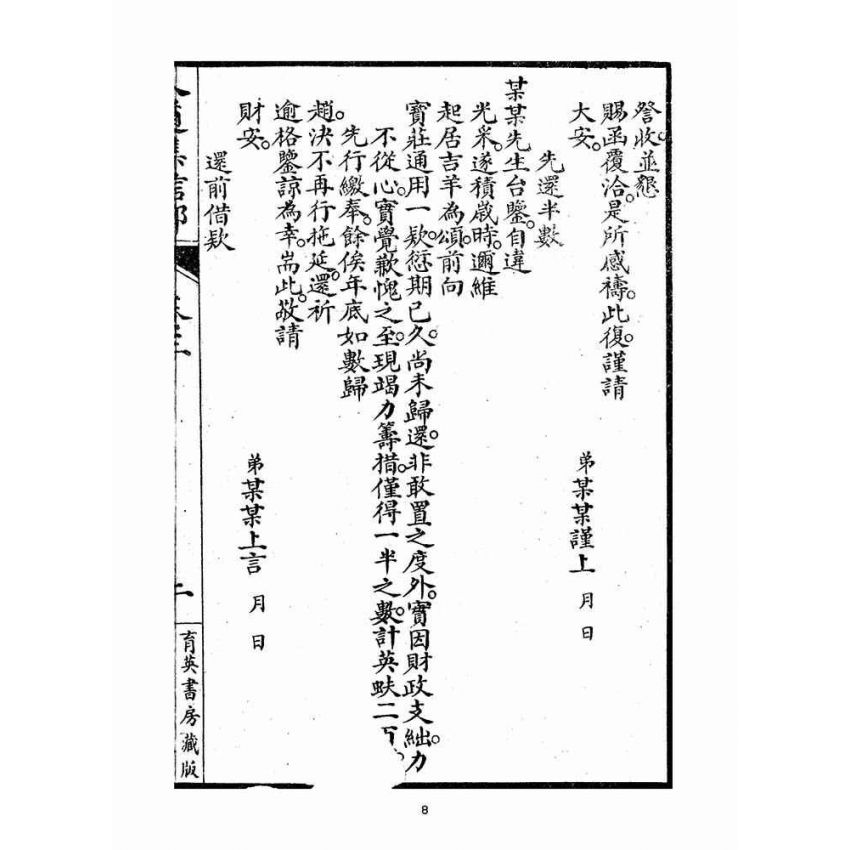 詧收並懇
賜函覆洽。是所感禱。此復。謹請
大安。
弟某某謹上 月 日
先還半數
某某先生台鑒。自違
光采。遂積嵗時。邇維
起居吉羊為頌。前向
寶莊通用一欵。愆期已久。尚未歸還。非敢置之度外。實因財政支絀。力
不從心。實覺歉愧之至。現竭力籌措。僅得一半之數。計英蚨二百
先行繳奉。餘俟年底如數歸
趙。決不再行拖延。還祈
逾格鑒諒為幸。耑此。敬請
財安。
弟某某上言 月 日
還前借欵
二
育英書房藏版
8